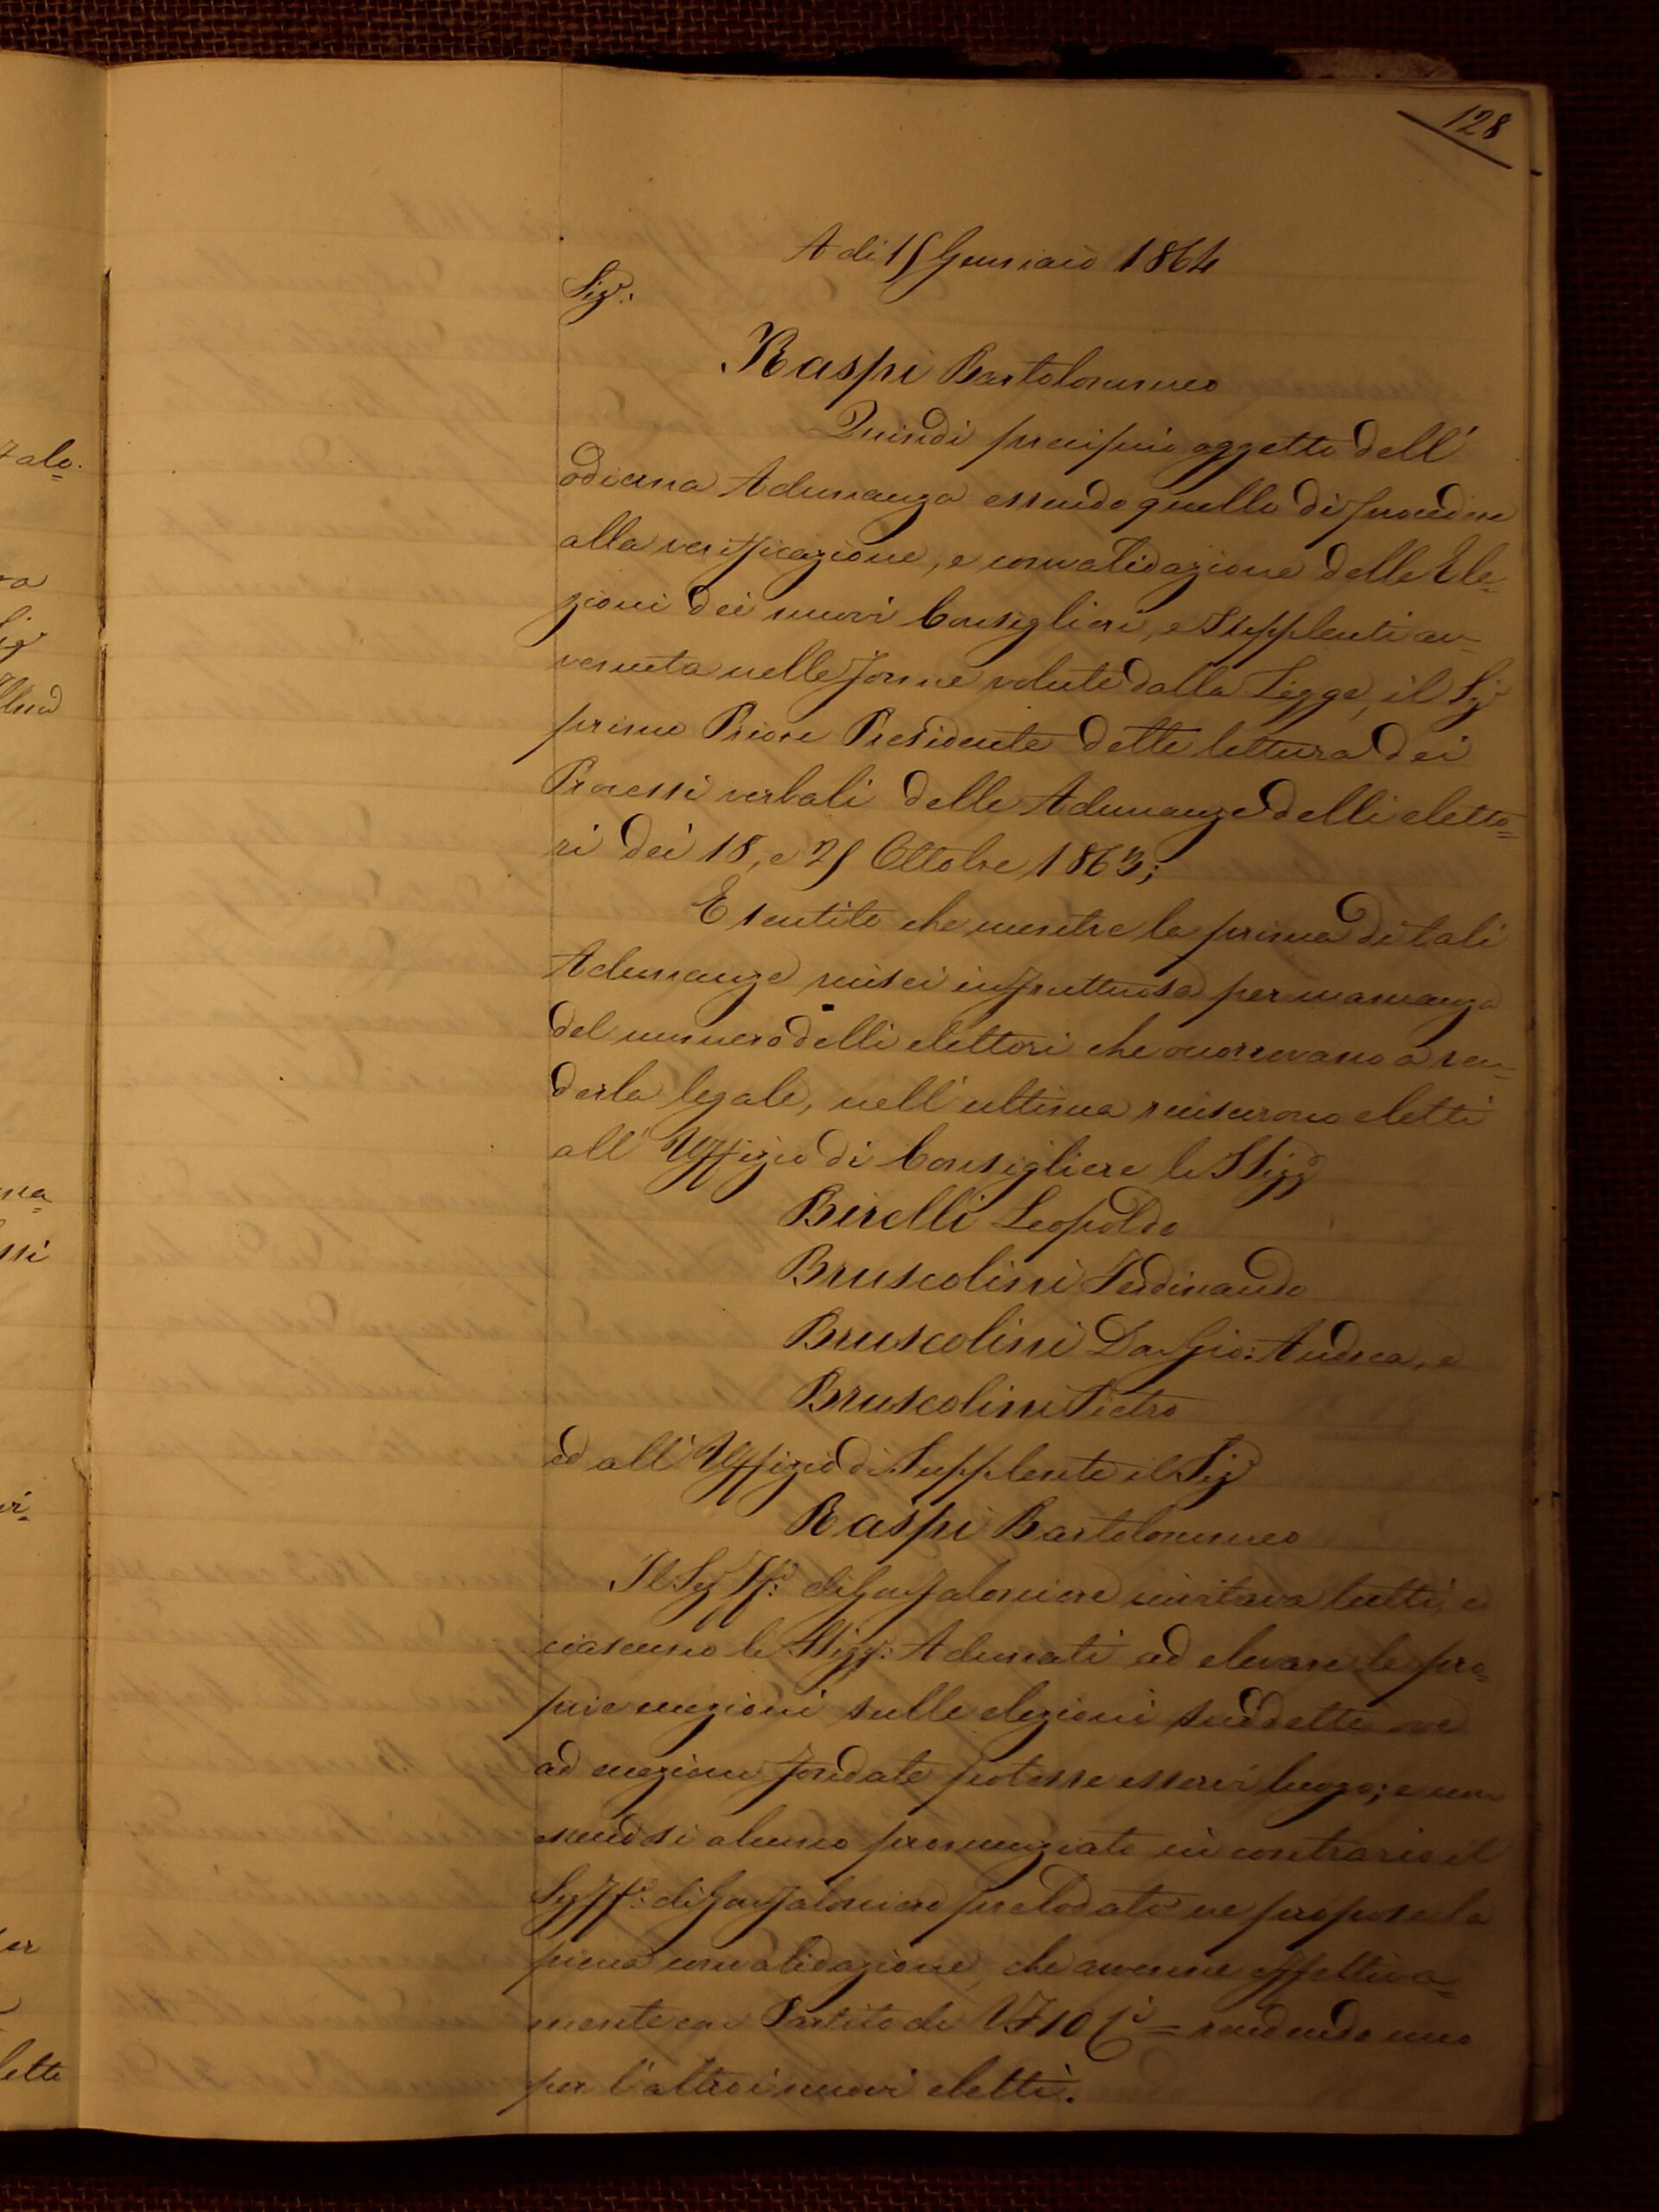 128
A di 15 Gennaio 1864
Sig.:
Raspi Bartolommeo
Quindi precipuo oggetto dell'
odierna Adunanza essendo quello di procedere
alla verificazione, e convalidazione delle Ele-
zioni dei nuovi Consiglieri, e Supplenti av-
venuta nelle forme volute dalla Legge, il Sig.
primo Priore Presidente dette lettura dei
Processi verbali delle Adunanze delli eletto=
ri dei 18, e 25 Ottobre 1863;
E sentito che mentre la prima di tali
Adunanze riuscì infruttuosa per mancanza
del numero delli elettori che occorrevano a ren-
derla legale, nell'ultima riuscirono eletti
all'Uffizio di Consigliere li SSigg.
Birelli Leopoldo
Bruscolini Ferdinando
Bruscolini Dr. Gio: Andrea, e
Bruscolini Pietro
ed all'Uffizio di Supplente il Sig.
Raspi Bartolommeo
Il Sig. ff: di Gonfaloniere invitava tutti, e
ciascuno li SSigg: Adunati ad elevare le pro=
prie eccezioni sulle elezioni suddette ove
ad eccezioni fondate potesse esservi luogo; e non
essendosi alcuno pronunziato in contrario il
Sig. ff: di Gonfaloniere prelodato ne propose la
piena convalidazione, che avvenne effettiva=
mente con Partito di VF 10 = rendendo uno
per l'altro i nuovi eletti.
talo.
ra
Sig
na=
ssi
vi=
er
lette